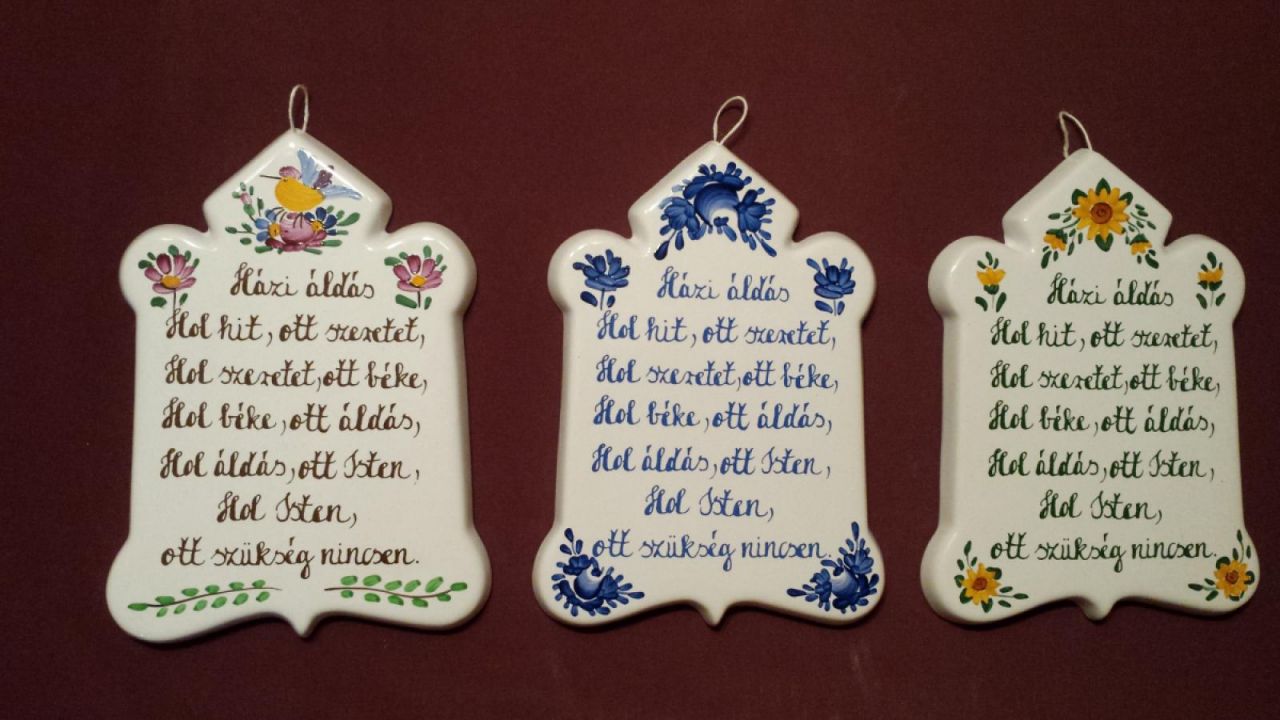 Házi áldás
Hol hit, ott szeretet,
Hol szeretet, ott béke,
Hol béke, ott áldás,
Hol áldás, ott Isten,
Hol Isten,
ott szükség nincsen.
Házi áldás
Hol hit, ott szeretet,
Hol szeretet, ott béke,
Hol béke, ott áldás,
Hol áldás, ott Isten,
Hol Isten,
ott szükség nincsen.
Házi áldás
Hol hit, ott szeretet,
Hol szeretet, ott béke,
Hol béke, ott áldás,
Hol áldás, ott Isten,
Hol Isten,
ott szükség nincsen.